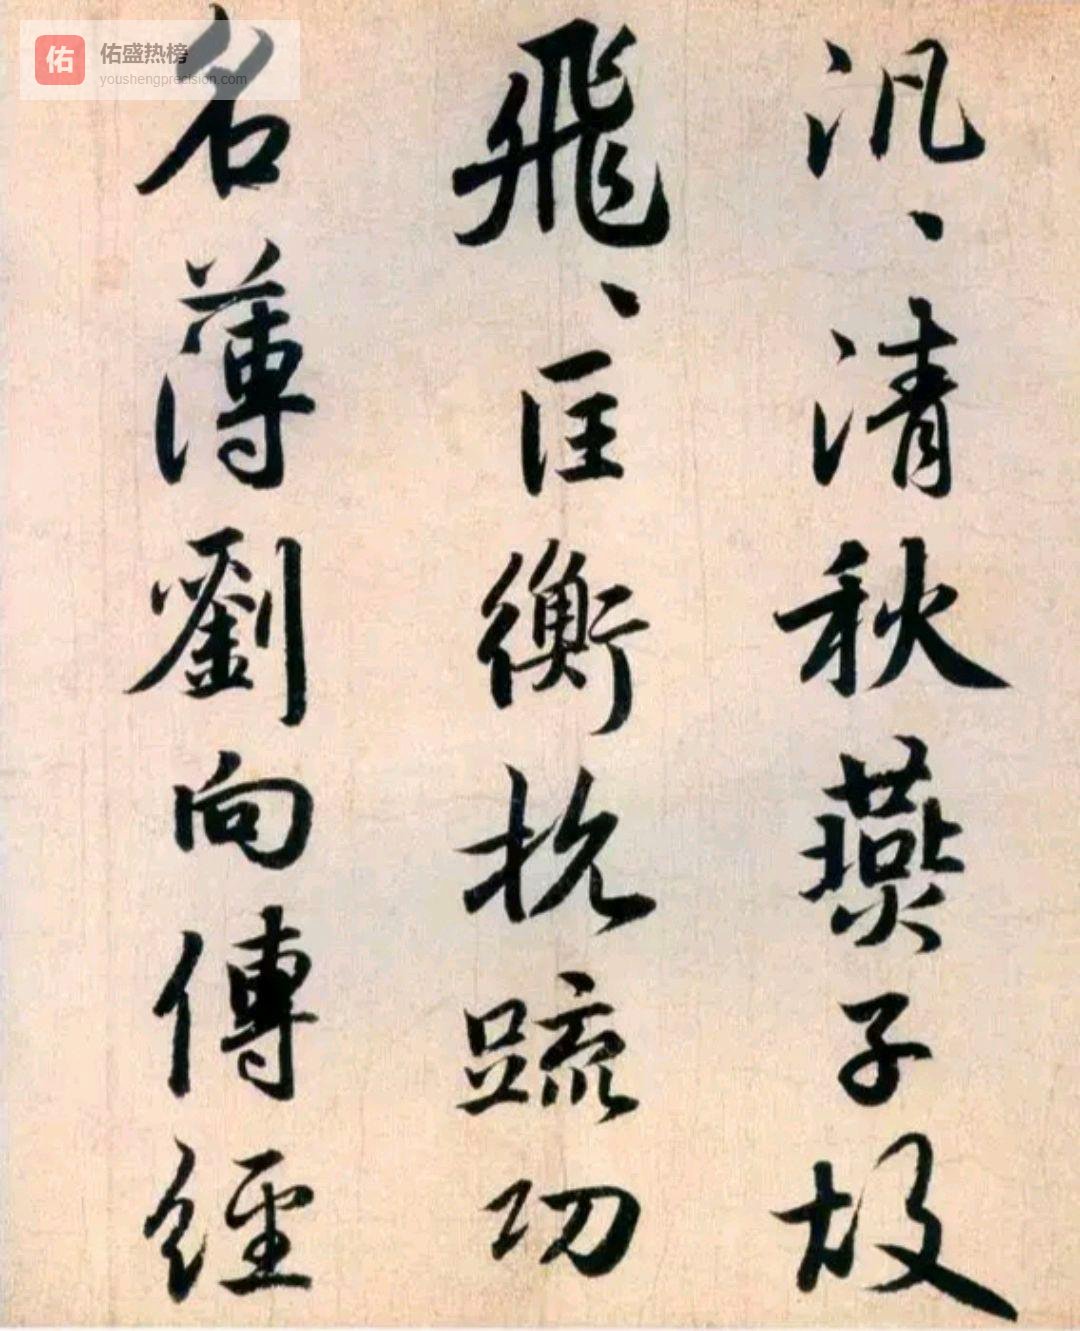 佑盛热榜
youshengprecision.com
汎、清秋燕子故
飛、匡衡抗疏功
名薄劉向傳經